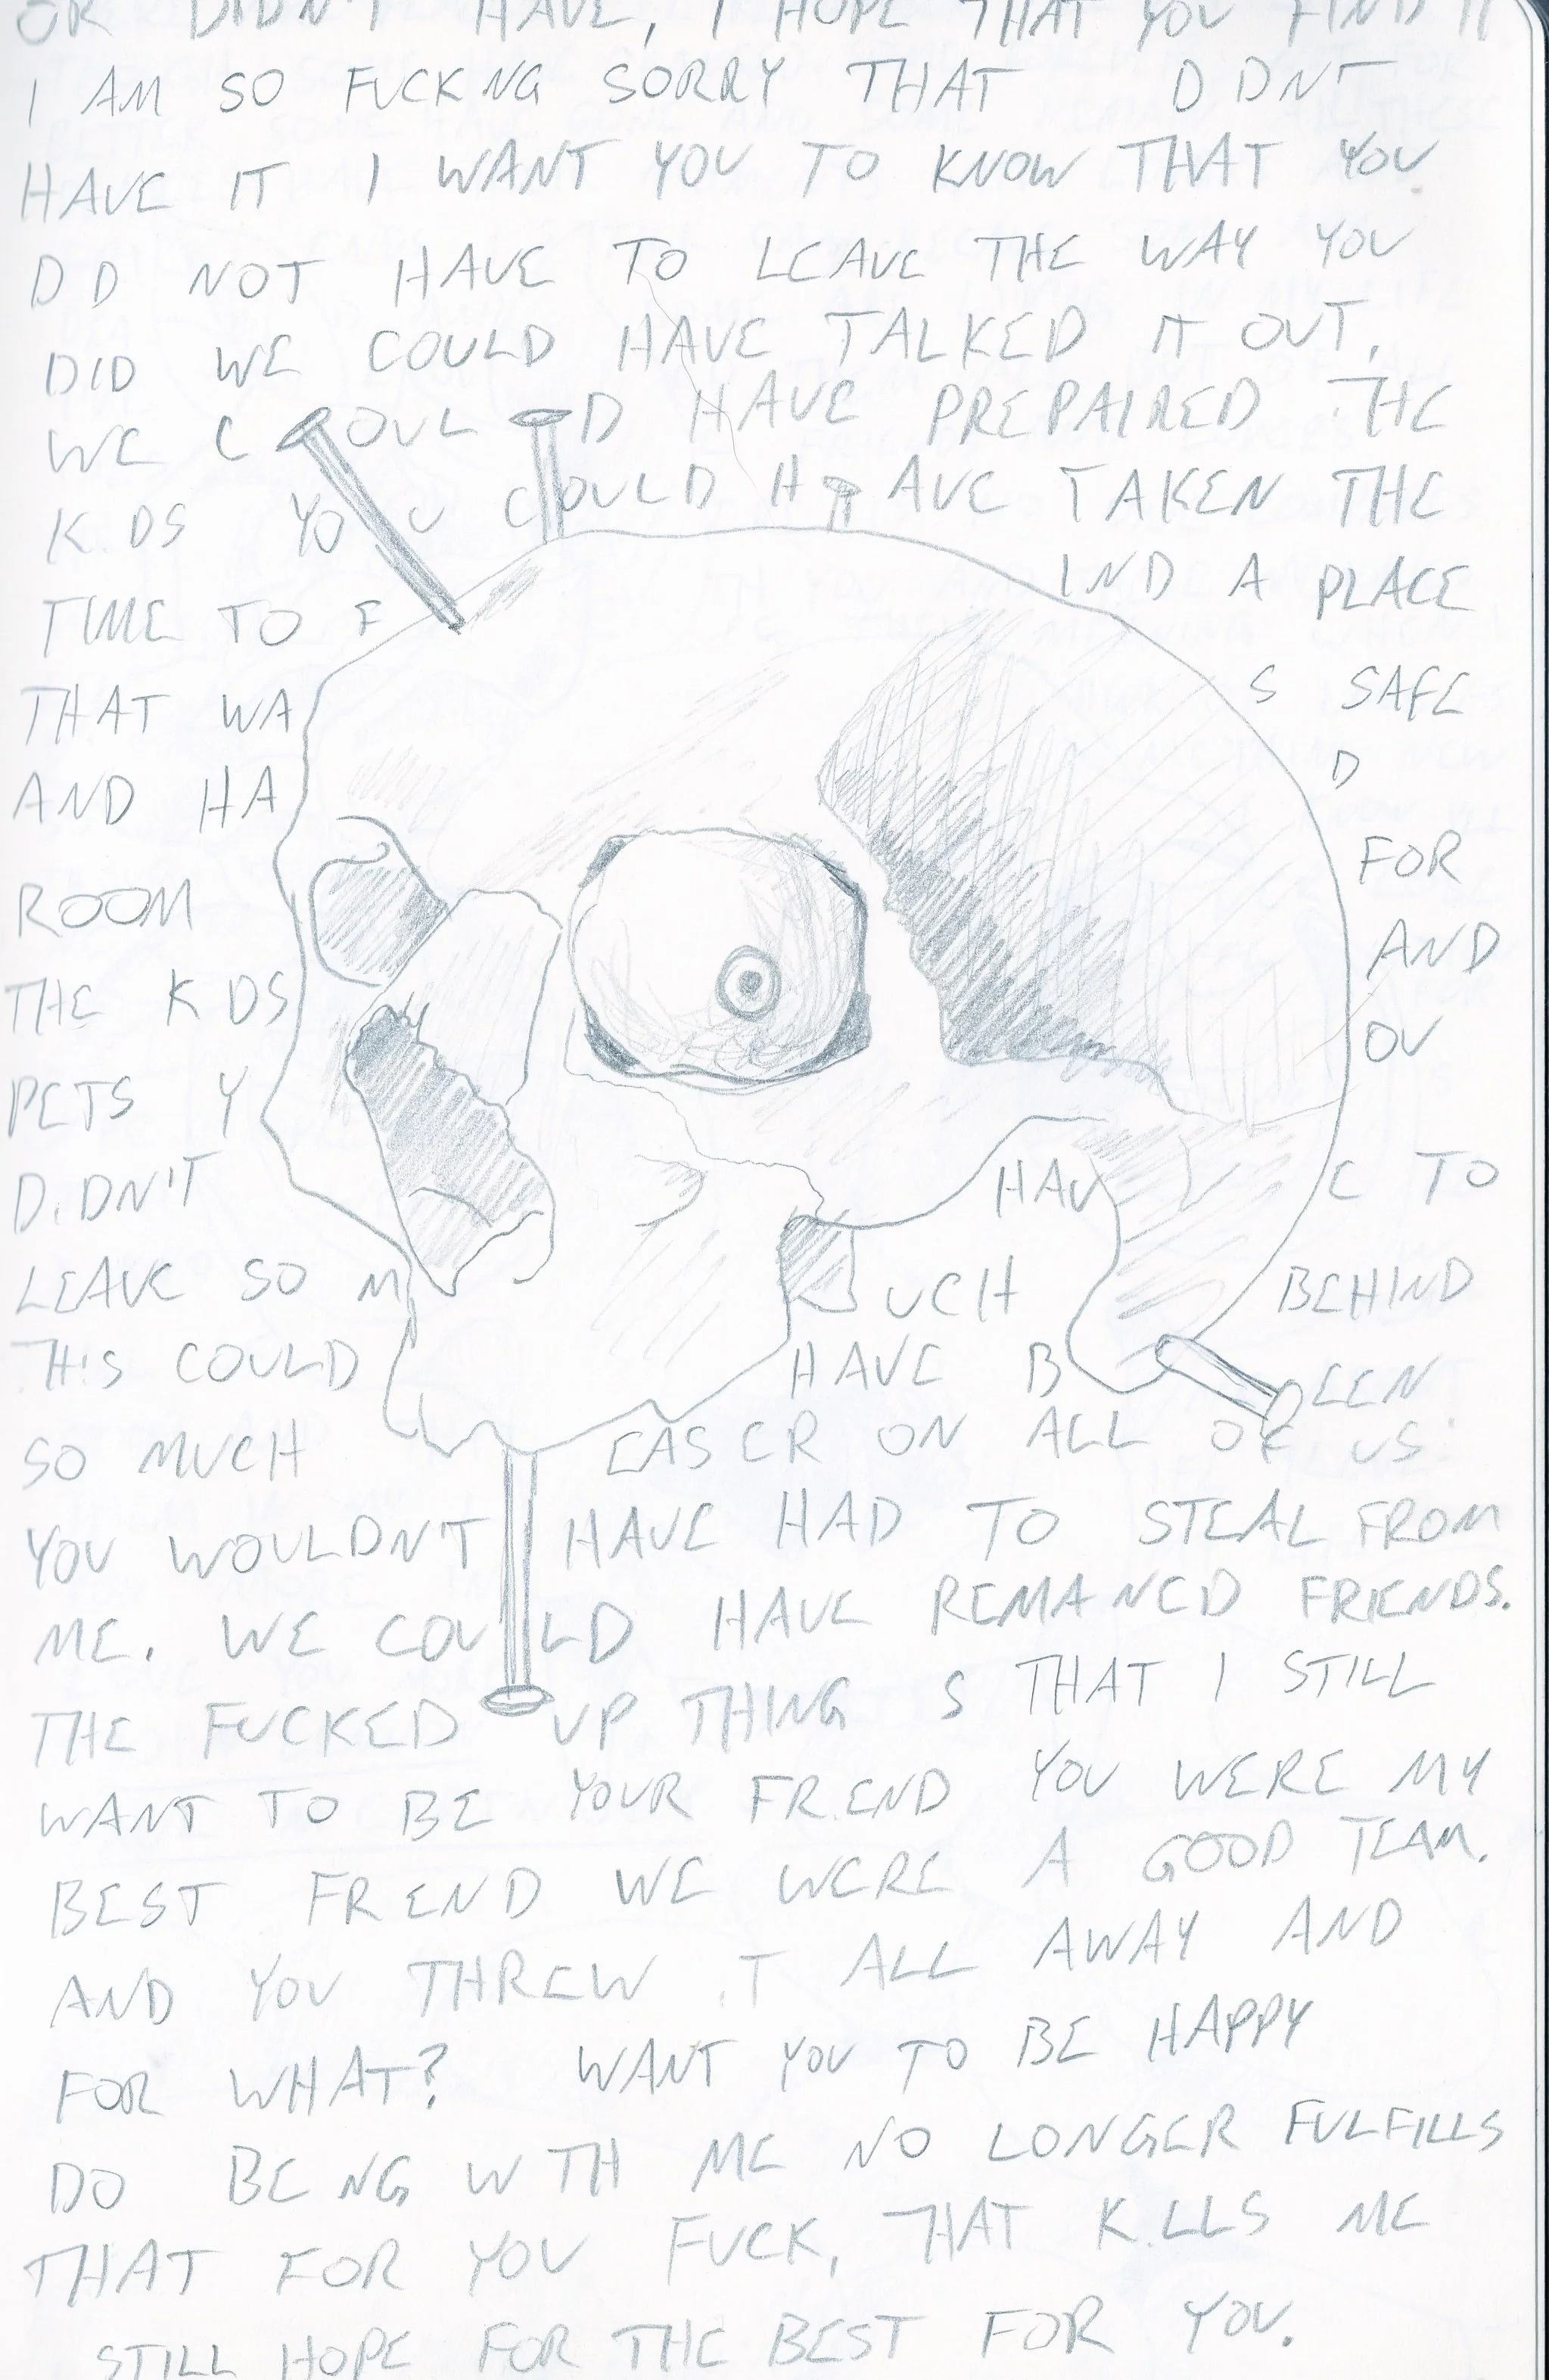 OR DIDN'T HAVE, I HOPE THAT YOU FIND IT
I AM SO FUCK NG SORRY THAT D DNT
HAVE IT I WANT YOU TO KNOW THAT YOU
D D NOT HAVE TO LEAVE THE WAY YOU
DID WE COULD HAVE TALKED IT OUT.
WE COULD HAVE PREPAIRED THE
K DS YOU COULD HAVE TAKEN THE
TIME TO FIND A PLACE
THAT WAS SAFE
AND HAD
ROOM FOR
THE K DS AND
PETS YOU
DIDN'T HAVE TO
LEAVE SO MUCH BEHIND
THIS COULD HAVE BEEN
SO MUCH EAS ER ON ALL OF US
YOU WOULDN'T HAVE HAD TO STEAL FROM
ME. WE COULD HAVE REMA NED FRIENDS.
THE FUCKED UP THING S THAT I STILL
WANT TO BE YOUR FRIEND YOU WERE MY
BEST FR END WE WERE A GOOD TEAM.
AND YOU THREW IT ALL AWAY AND
FOR WHAT? WANT YOU TO BE HAPPY
DO BE NG W TH ME NO LONGER FULFILLS
THAT FOR YOU FUCK, THAT KILLS ME
STILL HOPE FOR THE BEST FOR YOU.